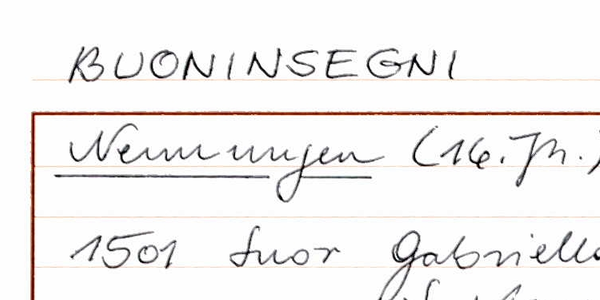 BUONINSEGNI
Nennungen (16. Jh.)
1501 Suor Gabriella